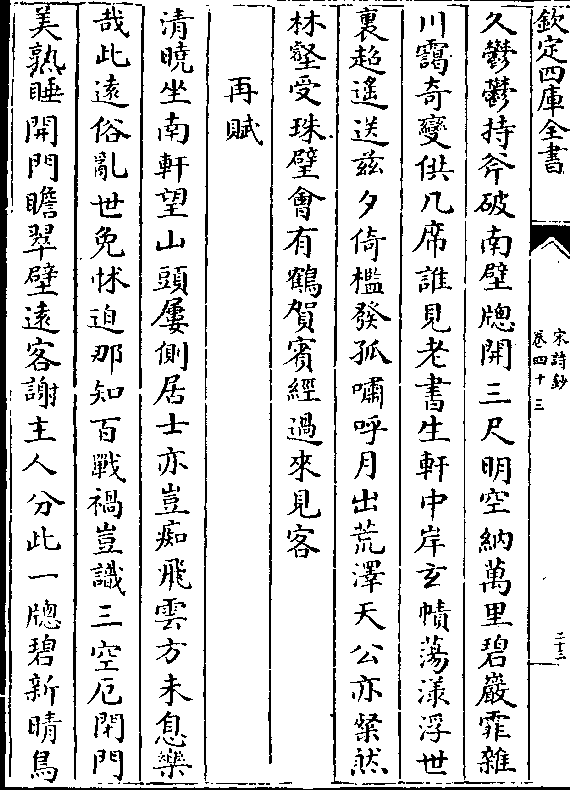 欽定四庫全書
宋詩鈔
卷四十三
二十三
久鬱鬱持斧破南壁牕開三尺明空納萬里碧巖霏雜
川靄奇變供几席誰見老書生軒中岸玄幘蕩漾浮世
裏超遙送兹夕倚檻發孤嘯呼月出荒澤天公亦粲然
林壑受珠璧會有鶴賀賓經過來見客
再賦
清曉坐南軒望山頭屢側居士亦豈痴飛雲方未息樂
哉此遠俗亂世免怵迫那知百戰禍豈識三空厄閉門
美熟睡開門瞻翠壁遠客謝主人分此一牕碧新晴鳥